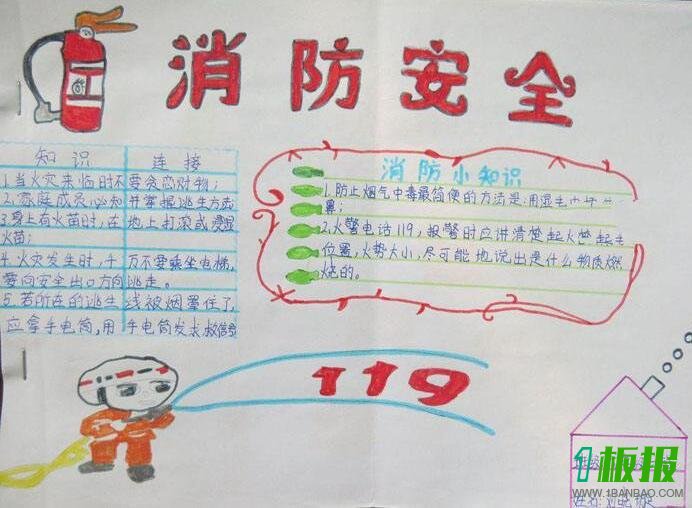 消防安全
知识 连接
1.当火灾来临时不要贪恋财物;
2.家庭成员必知并掌握逃生方法
3.身上有火苗时,在地上打滚或浸湿
火苗;
4.火灾发生时,千万不要乘坐电梯,
要向安全出口方向逃走。
5.若所在的逃生线被烟罩住了,
应拿手电筒,用手电筒发求救信号
消防小知识
1.防止烟气中毒最简便的方法是:用湿毛巾
鼻;
2.火警电话119,报警时应讲清楚起火
位置,火势大小,尽可能地说出是什么物质燃
烧的。
119
1板报
WWW.1BANBAO.COM
姓名: